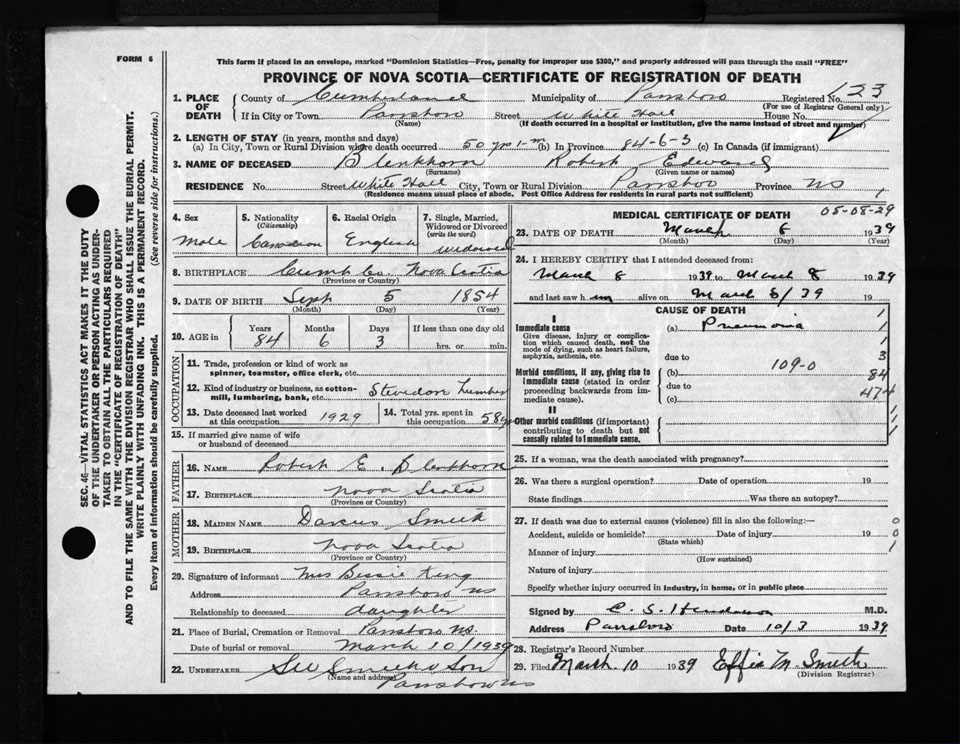 FORM 6
This form if placed in an envelope, marked "Dominion Statistics—Free, penalty for improper use $300," and properly addressed will pass through the mail "FREE"
PROVINCE OF NOVA SCOTIA—CERTIFICATE OF REGISTRATION OF DEATH
1. PLACE OF DEATH County of Cumberland Municipality of Parrsboro Registered No. 23
(For use of Registrar General only)
If in City or Town Parrsboro Street White Hall House No.
(Name) (If death occurred in a hospital or institution, give the name instead of street and number)
2. LENGTH OF STAY (in years, months and days)
(a) In City, Town or Rural Division where death occurred 50 yrs 1-m (b) In Province 84-6-3 (c) In Canada (if immigrant)
3. NAME OF DECEASED Blenkhorn Robert Edward
(Surname) (Given name or names)
RESIDENCE No. Street White Hall City, Town or Rural Division Parrsboro Province NS 1
(Residence means usual place of abode. Post Office Address for residents in rural parts not sufficient)
4. Sex 5. Nationality (Citizenship) 6. Racial Origin 7. Single, Married, Widowed or Divorced (write the word)
Male Canadian English widowed
8. BIRTHPLACE Cumb Co. Nova Scotia
(Province or Country)
9. DATE OF BIRTH Sept 5 1854
(Month) (Day) (Year)
10. AGE in Years Months Days If less than one day old
84 6 3 hrs. or min.
OCCUPATION
11. Trade, profession or kind of work as spinner, teamster, office clerk, etc.
12. Kind of industry or business, as cotton-mill, lumbering, bank, etc. Stevedore Lumber
13. Date deceased last worked at this occupation 1929 14. Total yrs. spent in this occupation 58
15. If married give name of wife or husband of deceased
FATHER
16. NAME Robert E. Blenkhorn
17. BIRTHPLACE Nova Scotia
(Province or Country)
MOTHER
18. MAIDEN NAME Darcus Smith
19. BIRTHPLACE Nova Scotia
(Province or Country)
20. Signature of informant Mrs Bessie King
Address Parrsboro NS
Relationship to deceased daughter
21. Place of Burial, Cremation or Removal Parrsboro NS.
Date of burial or removal March 10/1939
22. UNDERTAKER Smith & Son
(Name and address) Parrsboro NS
MEDICAL CERTIFICATE OF DEATH 05-08-29
23. DATE OF DEATH March 8 1939
(Month) (Day) (Year)
24. I HEREBY CERTIFY that I attended deceased from:
March 8 1939 to March 8 1939
and last saw him alive on March 8/39 19
CAUSE OF DEATH
I
Immediate cause (a) Pneumonia 1
Give disease, injury or complication which caused death, not the mode of dying, such as heart failure, asphyxia, asthenia, etc. 1
due to 3
Morbid conditions, if any, giving rise to immediate cause (stated in order proceeding backwards from immediate cause). (b) 109-0 84
due to 474
(c)
II
Other morbid conditions (if important) contributing to death but not causally related to immediate cause. 1
1
25. If a woman, was the death associated with pregnancy?
26. Was there a surgical operation? Date of operation 19
State findings Was there an autopsy?
27. If death was due to external causes (violence) fill in also the following:— 0
Accident, suicide or homicide? Date of injury 19 0
(State which)
Manner of injury 1
(How sustained)
Nature of injury
Specify whether injury occurred in industry, in home, or in public place
Signed by C. S. Henderson M.D.
Address Parrsboro Date 10/3 1939
28. Registrar's Record Number
29. Filed March 10 1939 Effie M. Smith
(Division Registrar)
SEC. 46—VITAL STATISTICS ACT MAKES IT THE DUTY
OF THE UNDERTAKER OR PERSON ACTING AS UNDER-
TAKER TO OBTAIN ALL THE PARTICULARS REQUIRED
IN THE "CERTIFICATE OF REGISTRATION OF DEATH"
AND TO FILE THE SAME WITH THE DIVISION REGISTRAR WHO SHALL ISSUE THE BURIAL PERMIT.
WRITE PLAINLY WITH UNFADING INK. THIS IS A PERMANENT RECORD.
Every item of information should be carefully supplied. (See reverse side for instructions.)